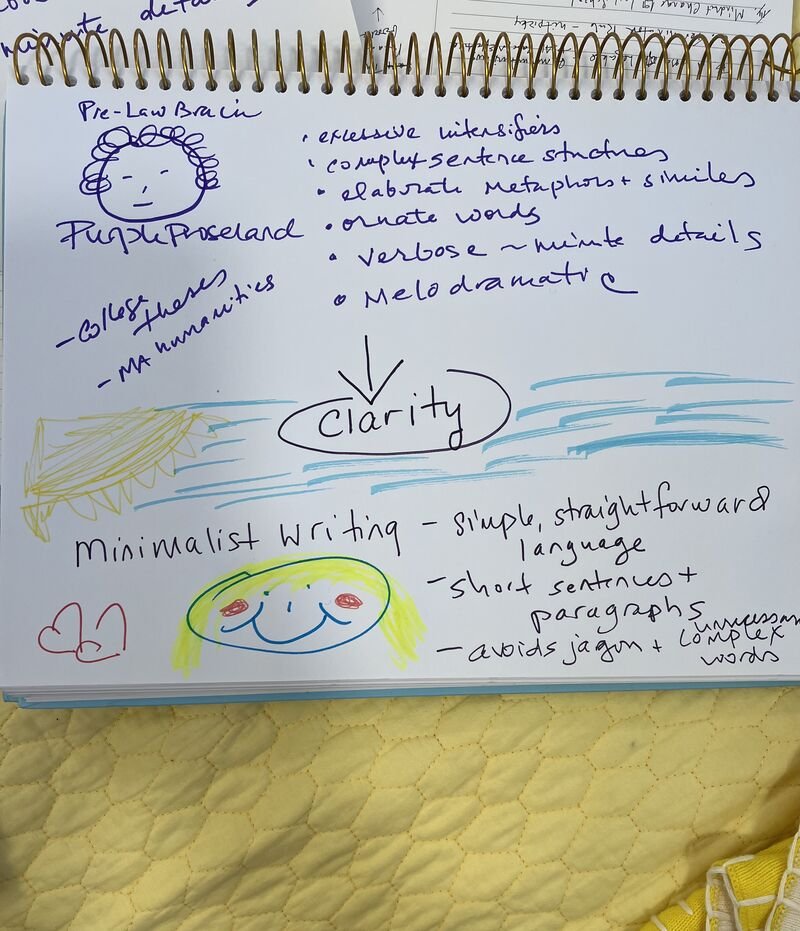 minute details
Pre-Law Brain
PurpleProseland
- College
theses
- MA humanities
• excessive intensifiers
• complex sentence structures
• elaborate metaphors + similes
• ornate words
• verbose ~ minute details
• Melodramatic
Clarity
Minimalist Writing - simple, straightforward
language
- short sentences +
paragraphs
unnecessary
- avoids jagon + complex
words